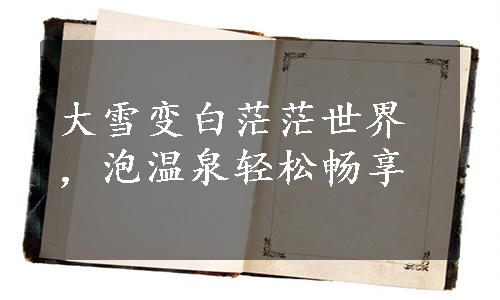 大雪变白茫茫世界
，泡温泉轻松畅享